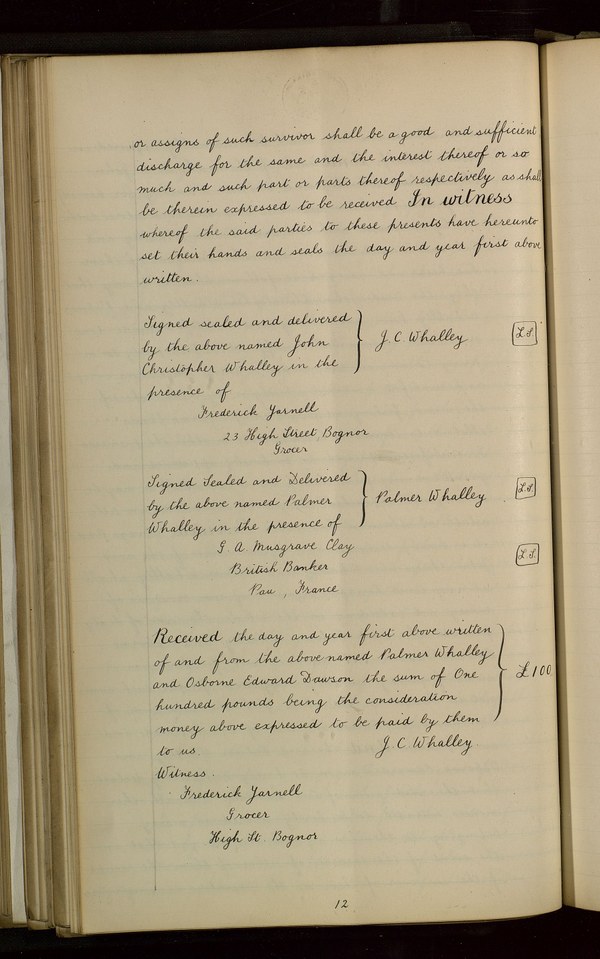 or assigns of such survivor shall be a good and sufficient
discharge for the same and the interest thereof or so
much and such part or parts thereof respectively as shall
be therein expressed to be received In witness
whereof the said parties to these presents have hereunto
set their hands and seals the day and year first above
written.
Signed sealed and delivered
by the above named John
Christopher Whalley in the
presence of
J. C. Whalley
L.S.
Frederick Yarnell
23 High Street, Bognor
Grocer
Signed Sealed and Delivered
by the above named Palmer
Whalley in the presence of
Palmer Whalley
L.S.
G. A. Musgrave Clay
British Banker
Pau, France
L.S.
Received the day and year first above written
of and from the above named Palmer Whalley
and Osborne Edward Dawson the sum of One
hundred pounds being the consideration
money above expressed to be paid by them
to us
£100
J. C. Whalley.
Witness.
Frederick Yarnell
Grocer
High St. Bognor
12